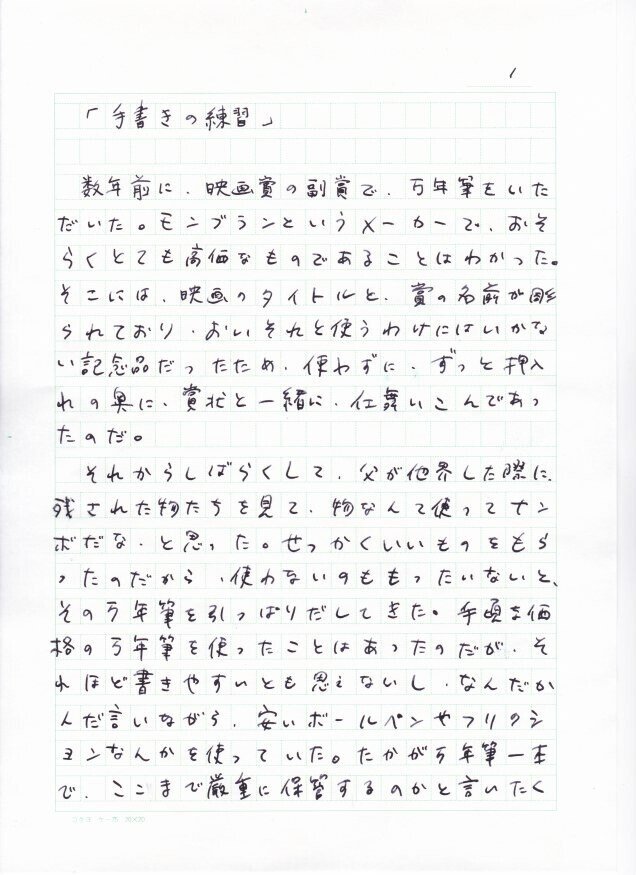 1
「手書きの練習」
数年前に、映画賞の副賞で、万年筆をいた
だいた。モンブランというメーカーで、おそ
らくとても高価なものであることはわかった。
そこには、映画のタイトルと、賞の名前が彫
られており、おいそれと使うわけにはいかな
い記念品だったため、使わずに、ずっと押入
れの奥に、賞状と一緒に、仕舞いこんであっ
たのだ。
それからしばらくして、父が他界した際に、
残された物たちを見て、物なんて使ってナン
ボだな、と思った。せっかくいいものをもら
ったのだから、使わないのももったいないと、
その万年筆を引っぱりだしてきた。手頃な価
格の万年筆を使ったことはあったのだが、そ
れほど書きやすいとも思えないし、なんだか
んだ言いながら、安いボールペンやフリクシ
ョンなんかを使っていた。たかが万年筆一本
で、ここまで厳重に保管するのかと言いたく
コクヨ ケ-75 20×20